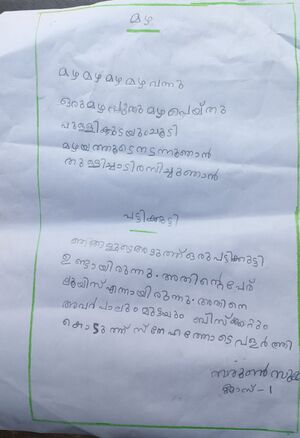 മഴ
മഴ മഴ മഴ മഴ വന്നു
ഒരു മഴ പെയ്തു
പുള്ളികുടയും ചൂടി
മഴയത്തൂടെ നടന്നു ഞാൻ
തുള്ളിച്ചാടി രസിച്ചു ഞാൻ
പട്ടിക്കുട്ടി
ഞങ്ങളുടെ അടുത്ത് ഒരു പട്ടിക്കുട്ടി
ഉണ്ടായിരുന്നു. അതിന്റെ പേര്
ലൂയിസ് എന്നായിരുന്നു. അതിനെ
അവർ പാലും മുട്ടയും ബിസ്ക്കറ്റും
കൊടുത്ത് സ്നേഹത്തോടെ വളർത്തി
ക്ലാസ് - 1